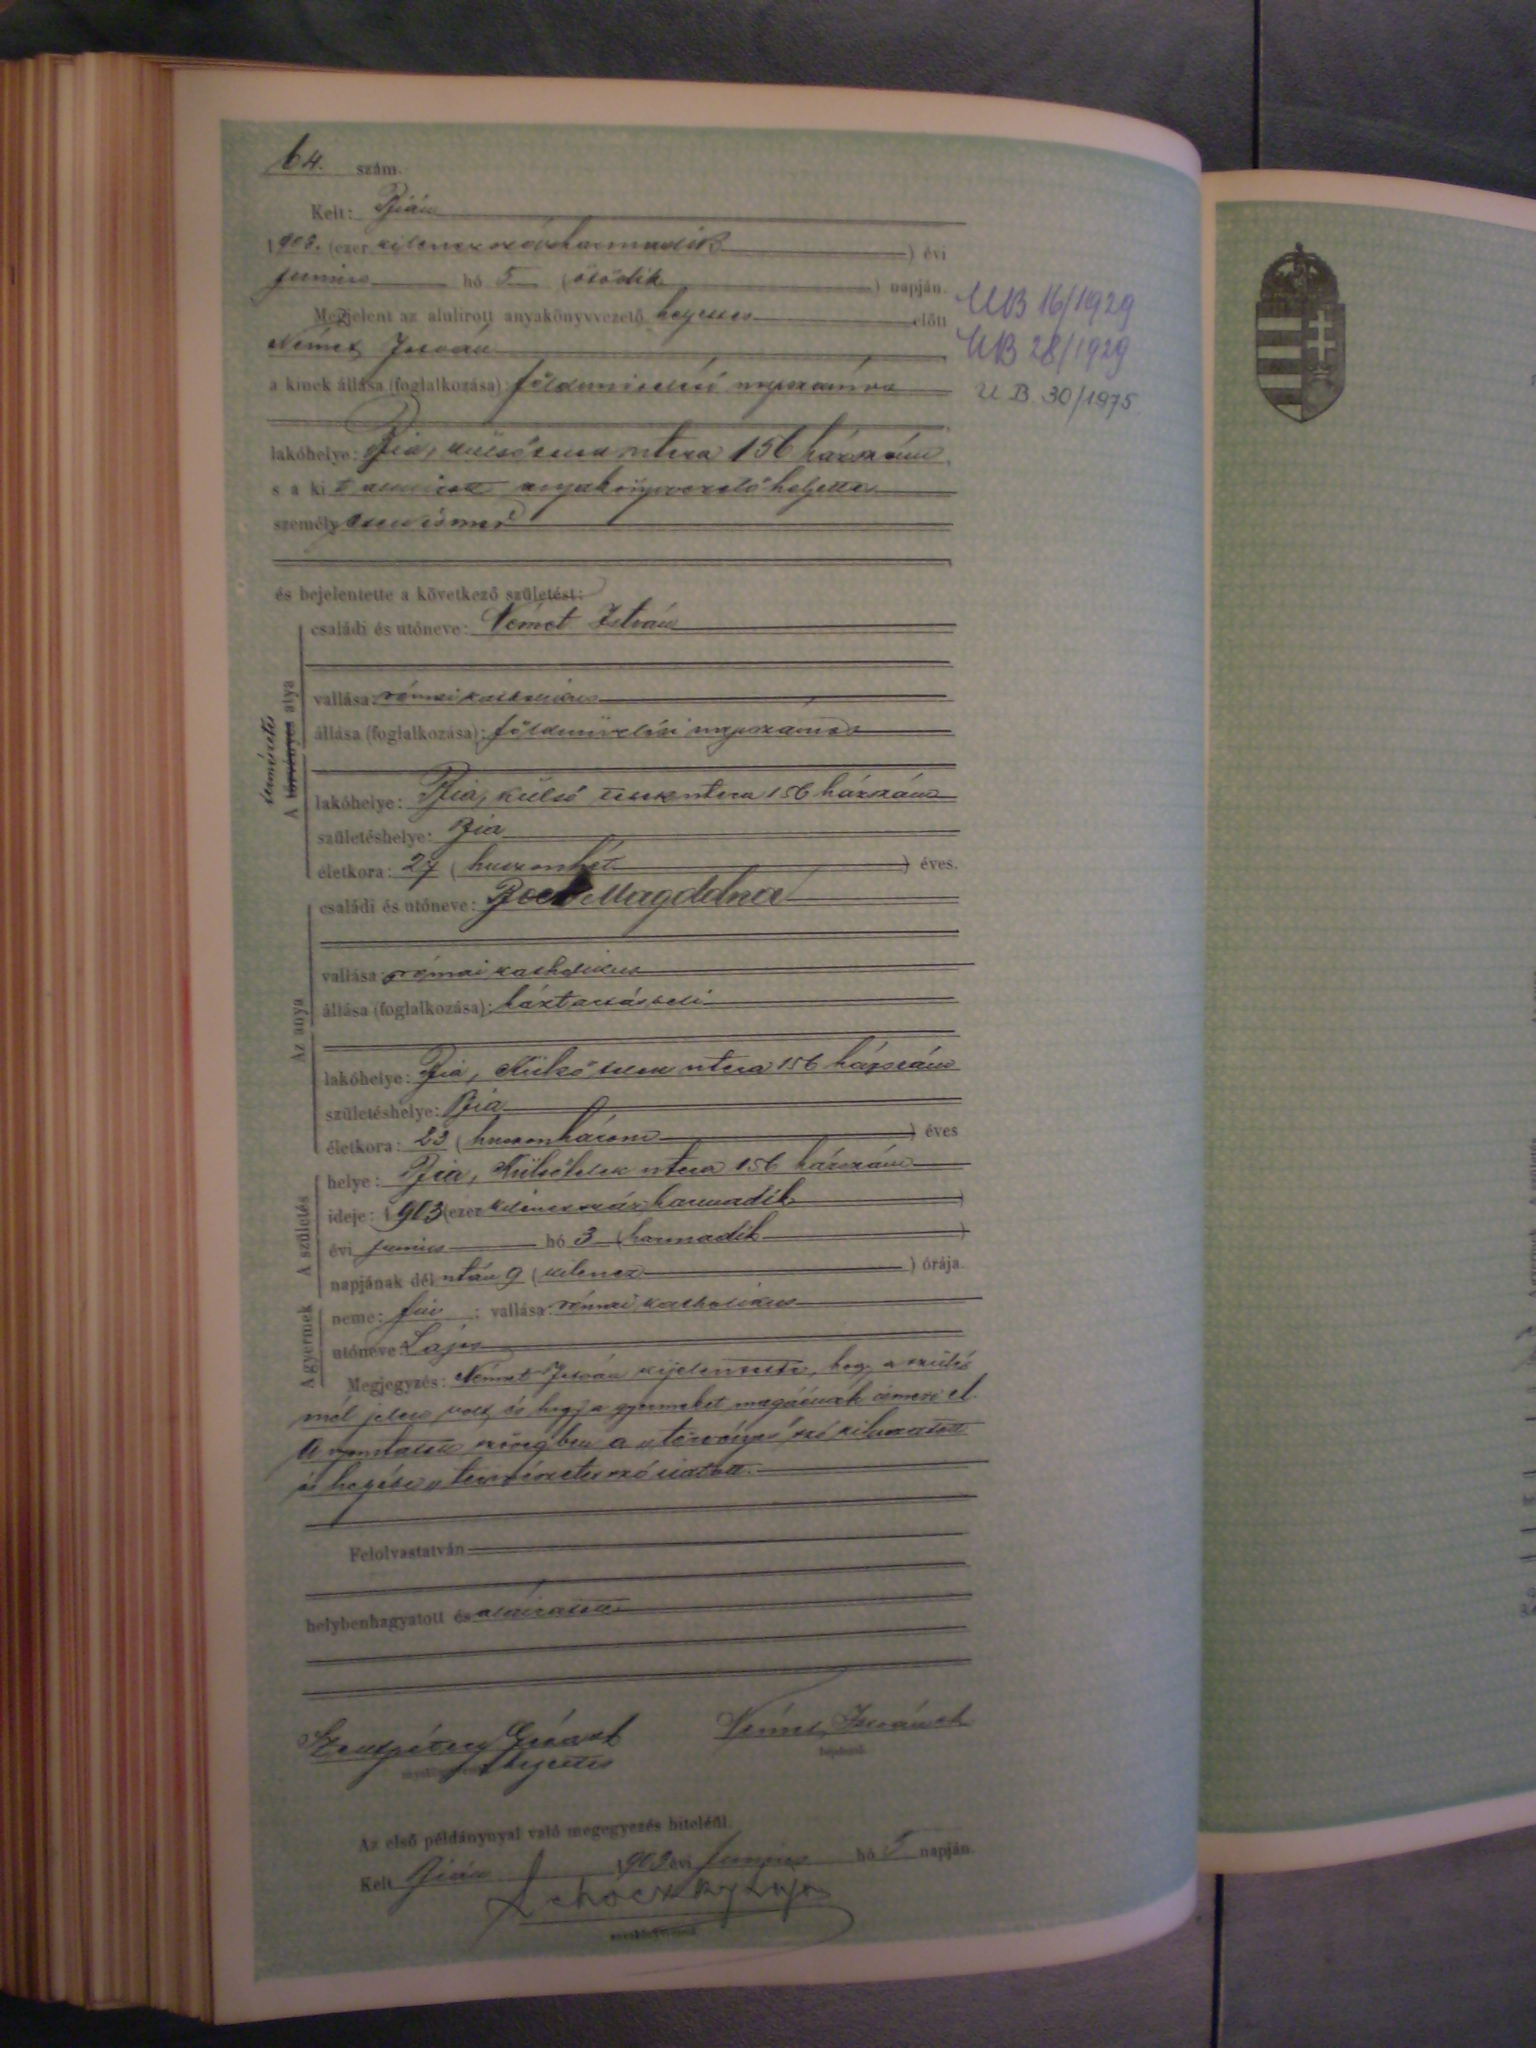 64. szám.
Kelt: Bián
1903. (ezer kilenczszázharmadik) évi
junius hó 5 (ötödik) napján.
Megjelent az alulirott anyakönyvvezető helyettes előtt
Német István
a kinek állása (foglalkozása): földmivelési napszámos
lakóhelye: Bia, utcza 156 házszám
s a ki anyakönyvvezető helyettes
személy ismer
és bejelentette a következő születést:
természetes
A törvényes atya
családi és utóneve: Német István
vallása: római katholikus
állása (foglalkozása): földmivelési napszámos
lakóhelye: Bia, külső utcza 156 házszám
születéshelye: Bia
életkora: 27 (huszonhét) éves.
Az anya
családi és utóneve: Magdolna
vallása: római katholikus
állása (foglalkozása): háztartásbeli
lakóhelye: Bia, Külső utcza 156 házszám
születéshelye: Bia
életkora: 23 (huszonhárom) éves
A születés
helye: Bia, utcza 156 házszám
ideje: 1903 (ezer kilenczszázharmadik)
évi junius hó 3 (harmadik)
napjának dél után 9 (kilencz) órája.
A gyermek
neme: fiu; vallása: római katholikus
utóneve: Lajos
Megjegyzés: Német István kijelentette, hogy a szülés
nél jelen volt és hogy a gyermeket magáénak ismeri el.
A nyomtatott szövegben a „törvényes" szó kihuzatott
és helyébe „természetes" szó iratott.
Felolvastatván
helybenhagyatott és aláiratott.
helyettes
bejelentő.
Az első példánynyal való megegyezés hiteléül.
Kelt Bián 1903 évi junius hó 5 napján.
anyakönyvvezető.
UB 16/1929
UB 28/1929
U.B. 30/1975.